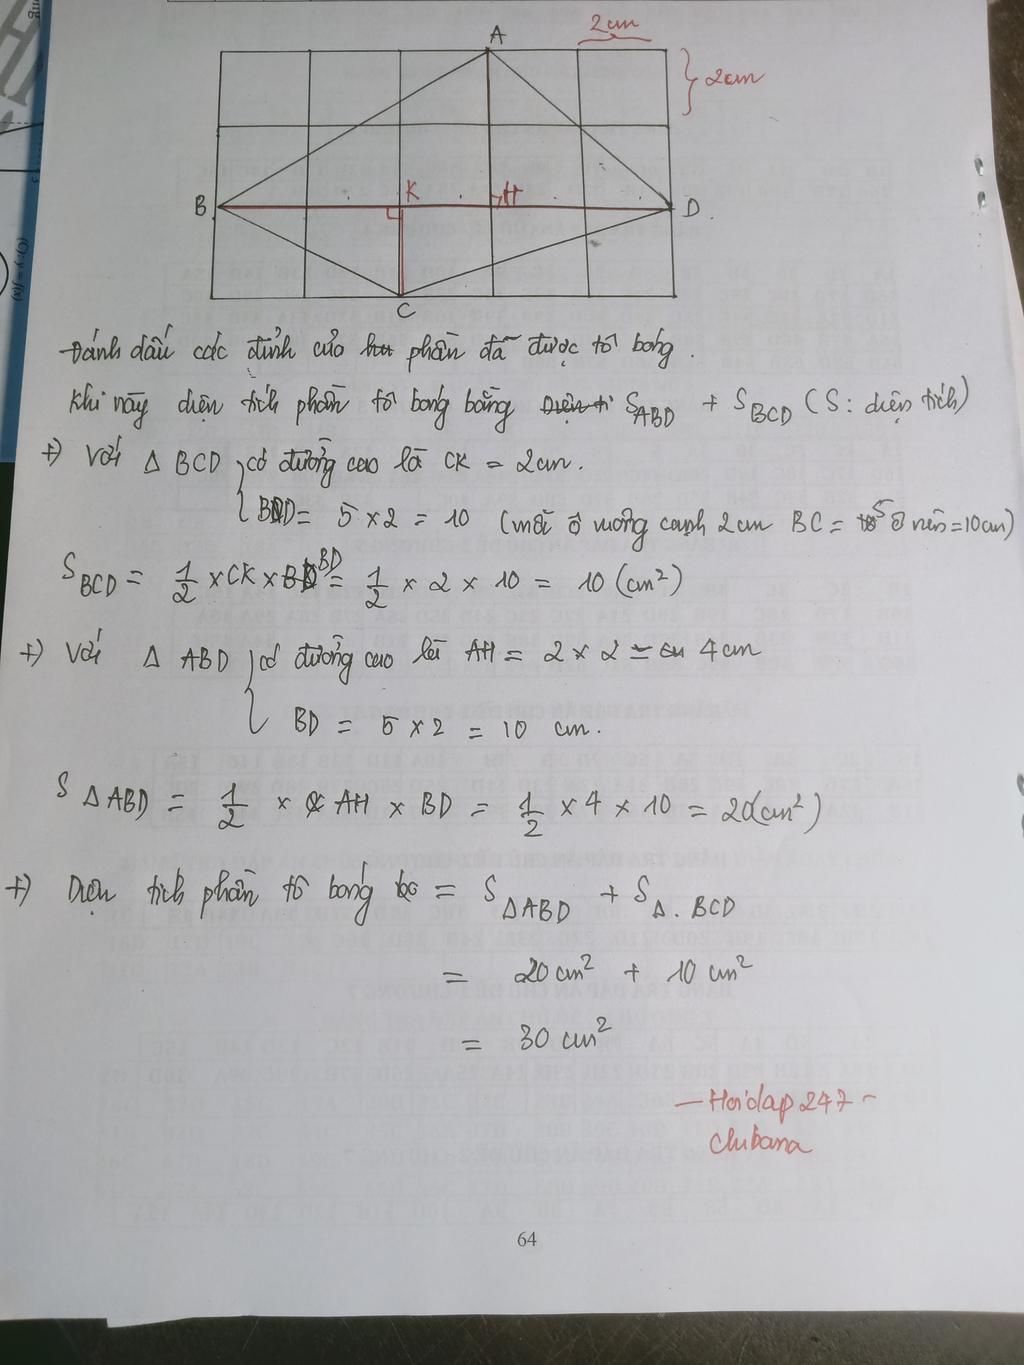 2cm
A
2cm
B
K
H
D
C
Đánh dấu các đỉnh của phần đã được tô bóng.
Khi này diện tích phần tô bóng bằng S ABD + S BCD (S: diện tích)
+) Với Δ BCD có đường cao là CK = 2cm.
BD = 5 × 2 = 10 (mỗi ô vuông cạnh 2cm BC = 5 ô nên = 10cm)
S BCD = 1/2 × CK × BD = 1/2 × 2 × 10 = 10 (cm²)
+) Với Δ ABD có đường cao là AH = 2 × 2 = 4cm
BD = 5 × 2 = 10 cm.
S Δ ABD = 1/2 × AH × BD = 1/2 × 4 × 10 = 20(cm²)
+) Diện tích phần tô bóng = S Δ ABD + S Δ. BCD
= 20 cm² + 10 cm²
= 30 cm²
— Hoidap 247 –
Chibana
64